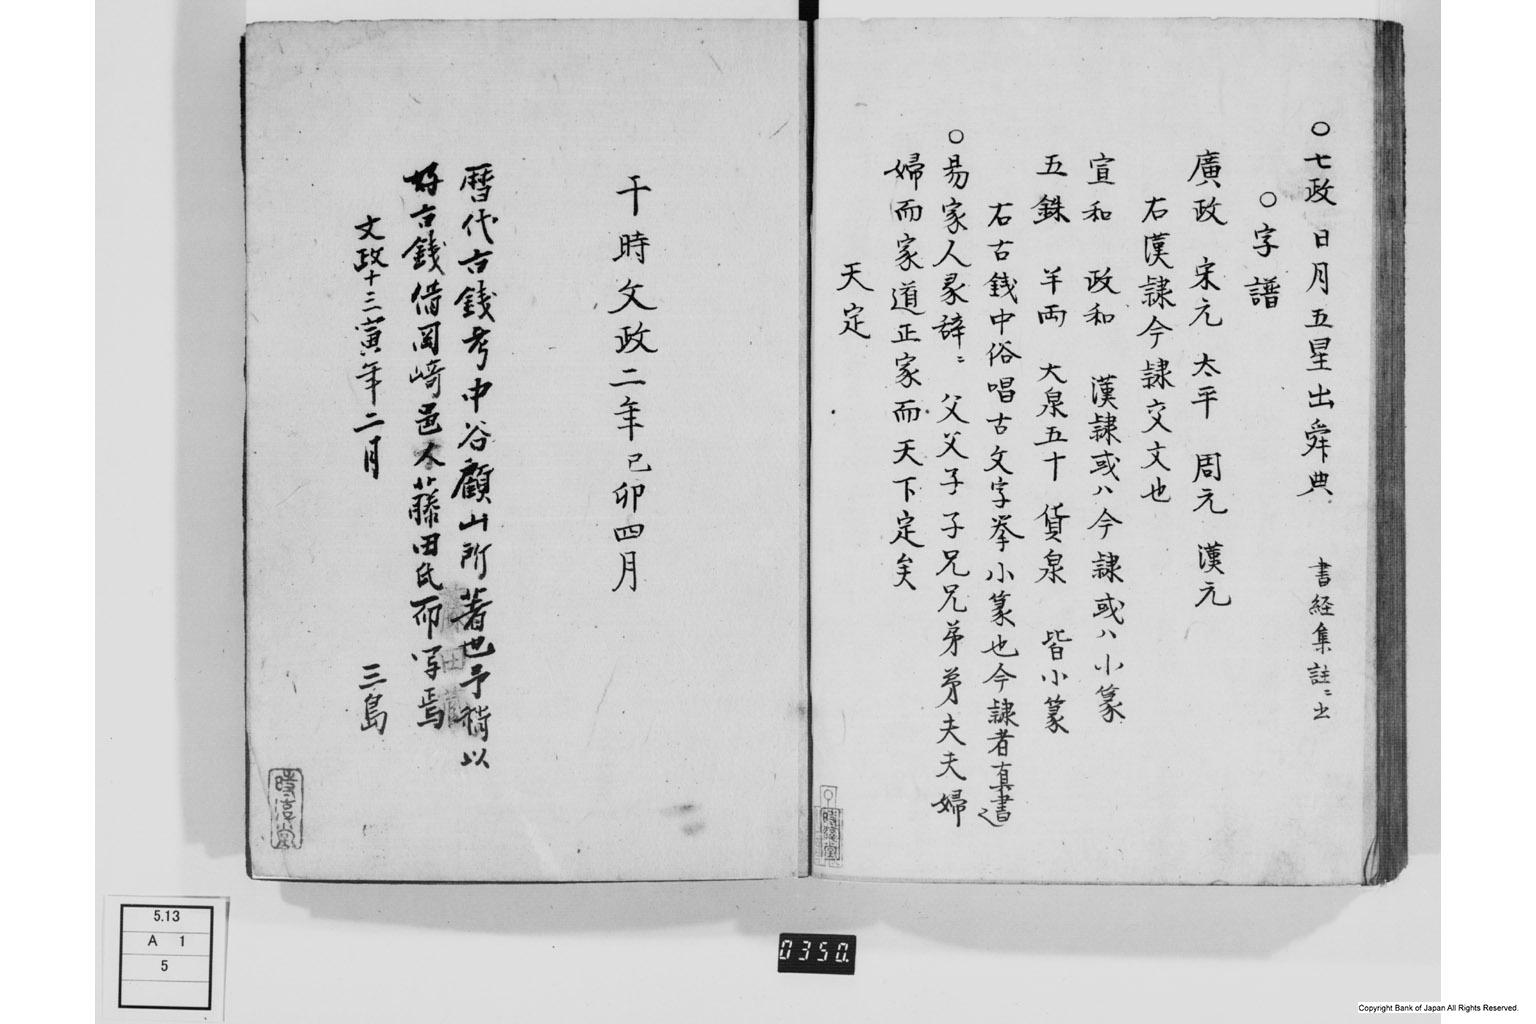 ○七政 日月五星出舜典 書経集註ニ出
○字譜
廣政 宋元 太平 周元 漢元
右漢隷今隷交文也
宣和 政和 漢隷或ハ今隷或ハ小篆
五銖 半両 大泉五十 貨泉 皆小篆
右古銭中俗唱古文字挙小篆也今隷者真書也
○易家人彖辞ニ 父父子子兄兄弟弟夫夫婦
婦而家道正家而天下定矣
天定
于時文政二年己卯四月
暦代古銭考中谷顧山所著也予以
好古銭借岡崎邑人藤田氏而写焉
文政十三寅年二月 三島
時淳堂
5.13
A 1
5
0350.
Copyright Bank of Japan All Rights Reserved.